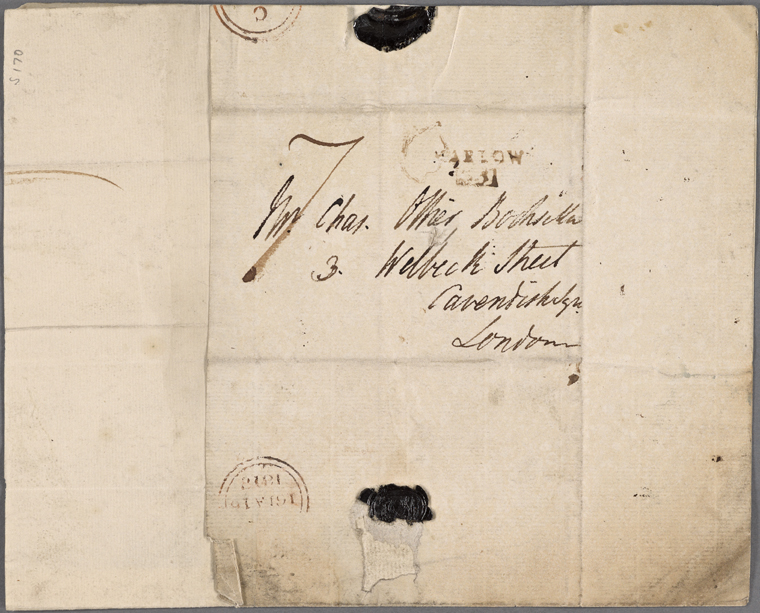 S170
C
MARLOW
33
7
Mr. Chas. Ollier Bookseller
3. Welbeck Street
Cavendish Sqr.
London
1818